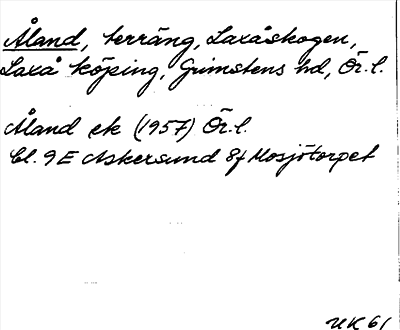 Åland, terräng, Laxåskogen,
Laxå köping, Grimstens hd, Ör. l.
Åland ek (1957) Ör. l.
Bl. 9E Askersund 8f Mosjötorpet
UK 61